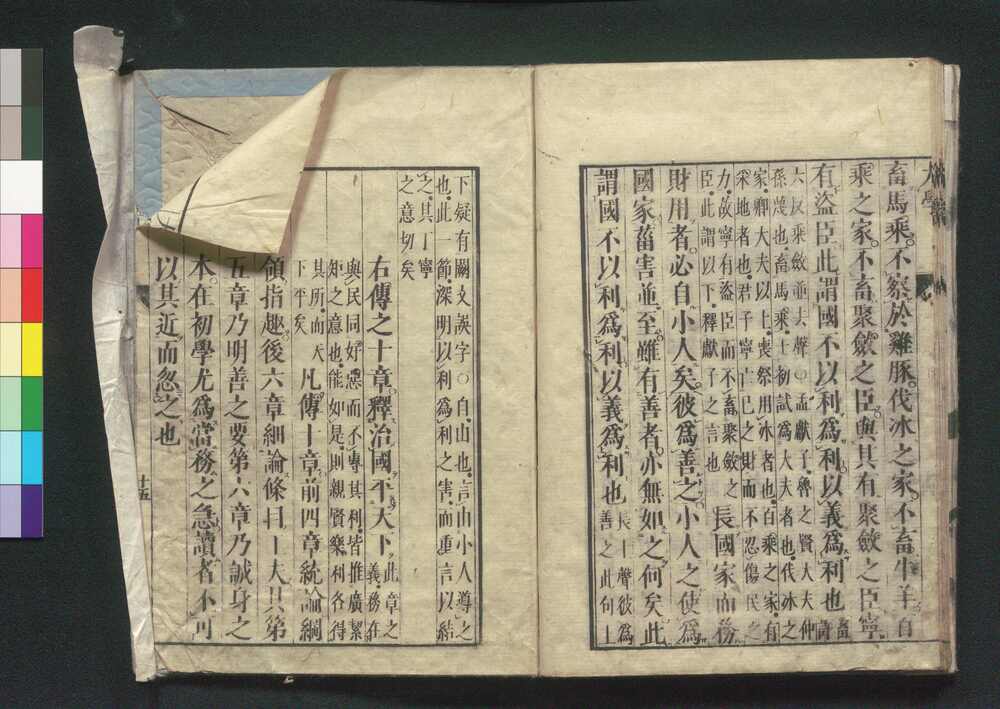 大學
畜馬乘不察於雞豚。伐冰之家。不畜牛羊。百
乘之家。不畜聚斂之臣。與其有聚斂之臣。寧
有盜臣。此謂國不以利爲利。以義爲利也畜許
六反乘斂並去聲○孟獻子魯之賢大夫仲
孫蔑也。畜馬乘。士初試爲大夫者也。伐冰之
家。卿大夫以上。喪祭用冰者也。百乘之家。有
采地者也。君子寧亡己之財。而不忍傷民之
力。故寧有盜臣而不畜聚斂之
臣。此謂以下。釋獻子之言也
長國家而務
財用者。必自小人矣。彼爲善之。小人之使爲
國家。菑害並至。雖有善者。亦無如之何矣。此
謂國不以利爲利。以義爲利也長上聲彼爲
善之此句上
下疑有闕文誤字○自由也。言由小人導之
也。此一節。深明以利爲利之害。而重言以結
之。其丁寧
之意切矣
右傳之十章。釋治國平天下。此章之
義。務在
與民同好惡而不專其利。皆推廣絜
矩之意也。能如是。則親賢樂利各得
其所。而天
下平矣
凡傳十章。前四章統論綱
領指趣。後六章細論條目工夫。其第
五章乃明善之要。第六章乃誠身之
本。在初學尤爲當務之急。讀者不可
以其近而忽之也
十五